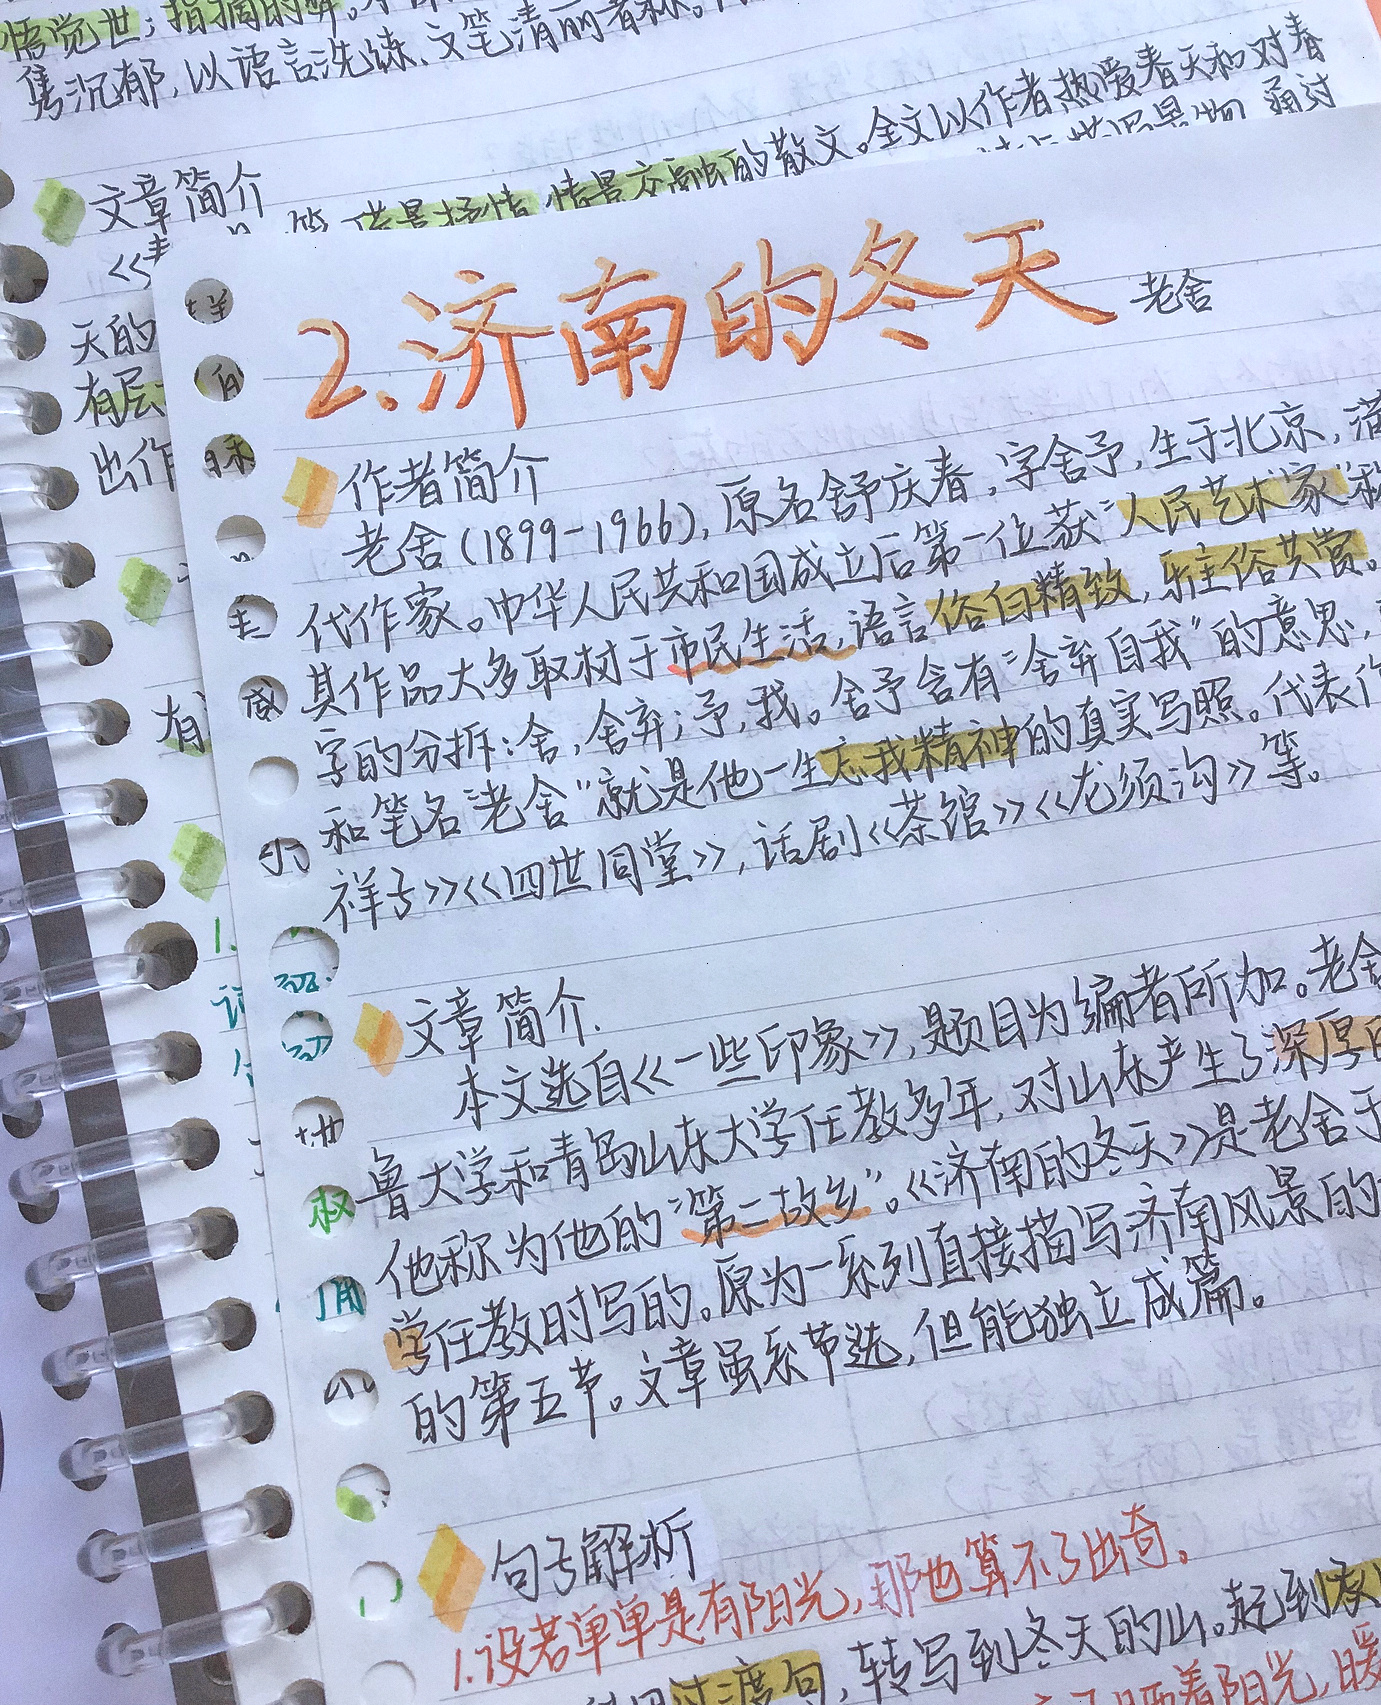 悟觉世；指摘时弊。
隽沉郁，以语言洗练、文笔清丽著称。
文章简介
借景抒情，情景交融的散文。全文以作者热爱春天和对春
景物，通过
天的
有层
出作
有
2.济南的冬天 老舍
作者简介
老舍(1899-1966)，原名舒庆春，字舍予，生于北京，满
代作家。中华人民共和国成立后第一位获“人民艺术家”称
其作品大多取材于市民生活，语言俗白精致，雅俗共赏。
字的分拆：舍，舍弃；予，我。舍予含有“舍弃自我”的意思，
和笔名“老舍”就是他一生忘我精神的真实写照。代表作
祥子》《四世同堂》，话剧《茶馆》《龙须沟》等。
文章简介.
本文选自《一些印象》，题目为编者所加。老舍
鲁大学和青岛山东大学任教多年，对山东产生了深厚的
他称为他的“第二故乡”。《济南的冬天》是老舍于
学任教时写的。原为一系列直接描写济南风景的
的第五节。文章虽系节选，但能独立成篇。
句子解析
1.设若单单是有阳光，那也算不了出奇。
过渡句，转写到冬天的山。起到承
晒着阳光，暖